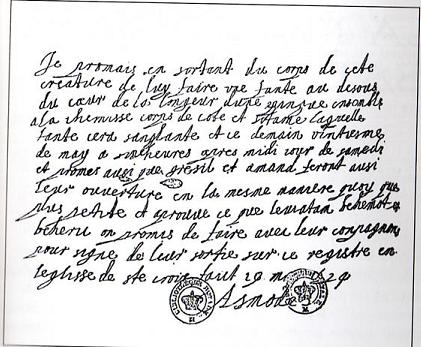 Je promais en sortant du corps de cete
creature de luy faire vne fante au desous
du cœur de la longeur dune epingue ensamble
a la chemisse corps de cote et sotane laquelle
fante cera sanglante et ce demain vintiesme
de may a sincheures apres midi jour de samedi
et promes aussi que gresil et amand feront aussi
leur ouverture en la mesme maniere quoy que
plus petite et aprouve ce que leviatam behemot
beherit on promis de faire avec leur compagnon
pour signe de leur sortie sur ce registre en
leglisse de ste croix fait 19 may
Asmodee